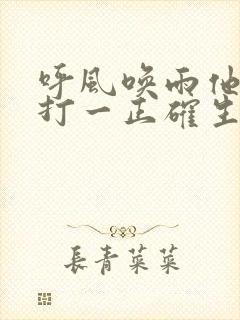 呼風喚雨他
打一正確生
長青菜菜